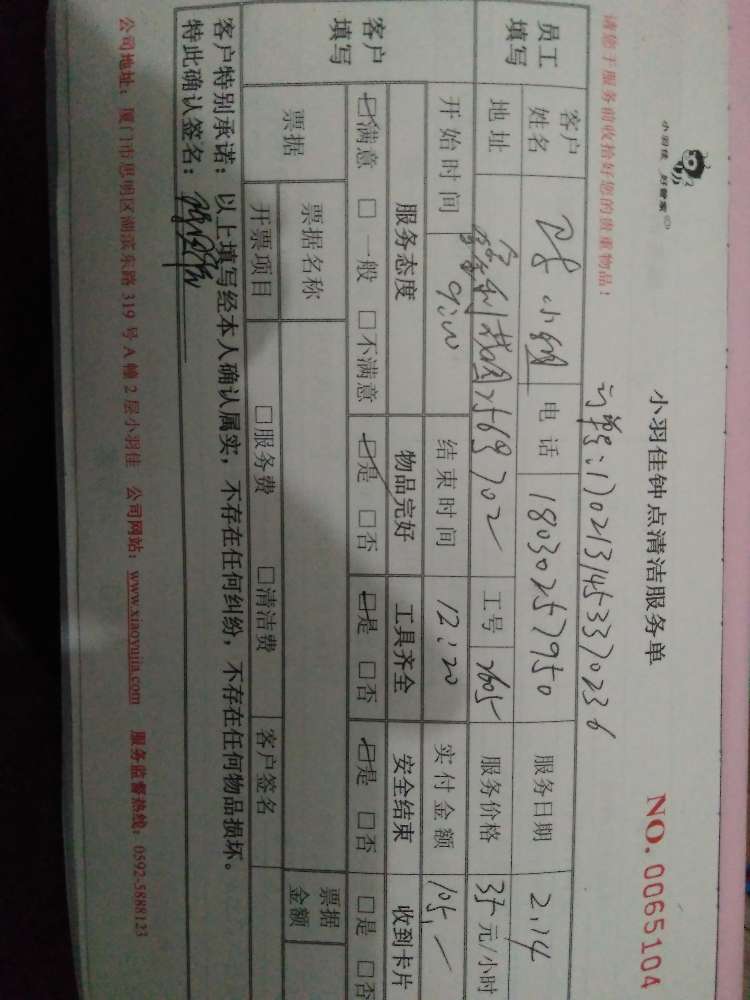 小羽佳 好管家
小羽佳钟点清洁服务单
NO. 0065104
请您于服务前收拾好您的贵重物品!
订单号:1702131453370236
员工填写
客户姓名 小姐 电话 18030257950 服务日期 2.14
地址 702 工号 2605 服务价格 35 元/小时
开始时间 9:00 结束时间 12:20 实付金额 105.—
客户填写
服务态度 物品完好 工具齐全 安全结束 收到卡片
☑满意 □一般 □不满意 ☑是 □否 ☑是 □否 ☑是 □否 □是 □否
票据 票据名称 票据金额
开票项目 □服务费 □清洁费 客户签名
客户特别承诺:以上填写经本人确认属实,不存在任何纠纷,不存在任何物品损坏。
特此确认签名:
公司地址:厦门市思明区湖滨东路 319 号 A 幢 2 层小羽佳 公司网站:www.xiaoyujia.com 服务监督热线:0592-5888123